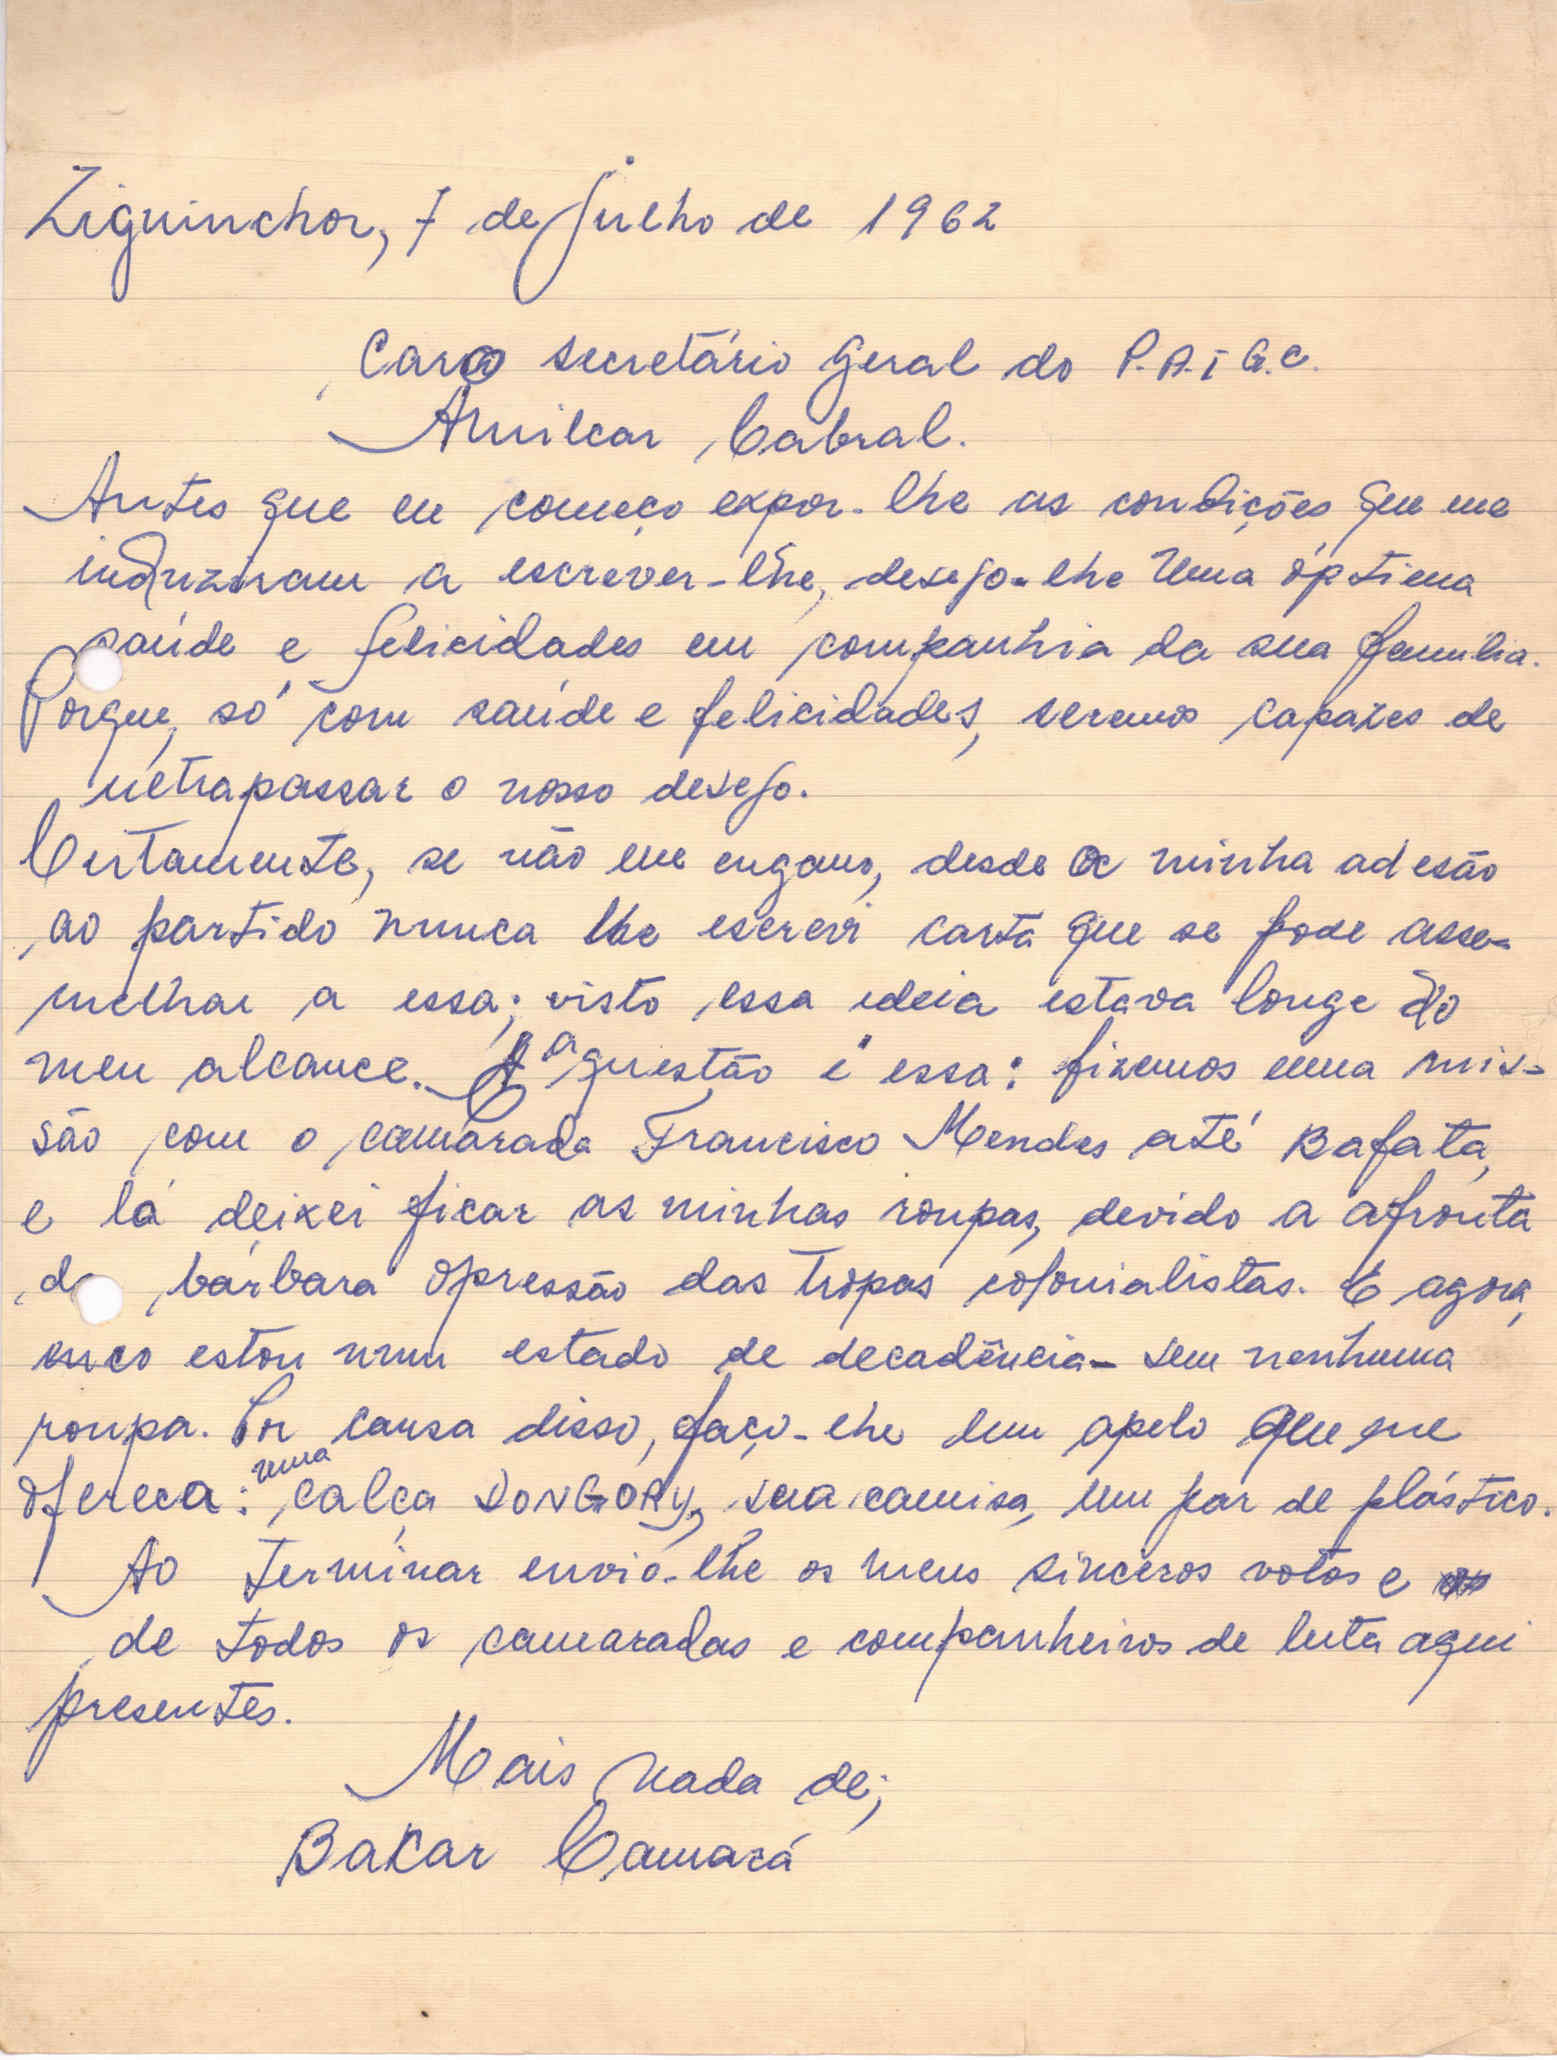 Ziguinchor, 7 de Julho de 1962
Caro secretário geral do P.A.I G.C.
Amilcar Cabral.
Antes que eu começo expor-lhe as condições que me
induziram a escrever-lhe, desejo-lhe uma óptima
saúde e felicidades em companhia da sua família.
Porque, só com saúde e felicidades, seremos capazes de
ultrapassar o nosso desejo.
Certamente, se não me engano, desde a minha adesão
ao partido nunca lhe escrevi carta que se pode asse-
melhar a essa; visto essa ideia estava longe do
meu alcance. A questão é essa: fizemos uma mis-
são com o camarada Francisco Mendes até Bafatá,
e lá deixei ficar as minhas roupas, devido a afronta
da bárbara opressão das tropas colonialistas. E agora,
estou num estado de decadência - sem nenhuma
roupa. Por causa disso, faço-lhe um apelo que me
ofereca: uma calça DONGORY, sua camisa, um par de plástico.
Ao terminar envio-lhe os meus sinceros votos e
de todos os camaradas e companheiros de luta aqui
presentes.
Mais nada de;
Bakar Camará